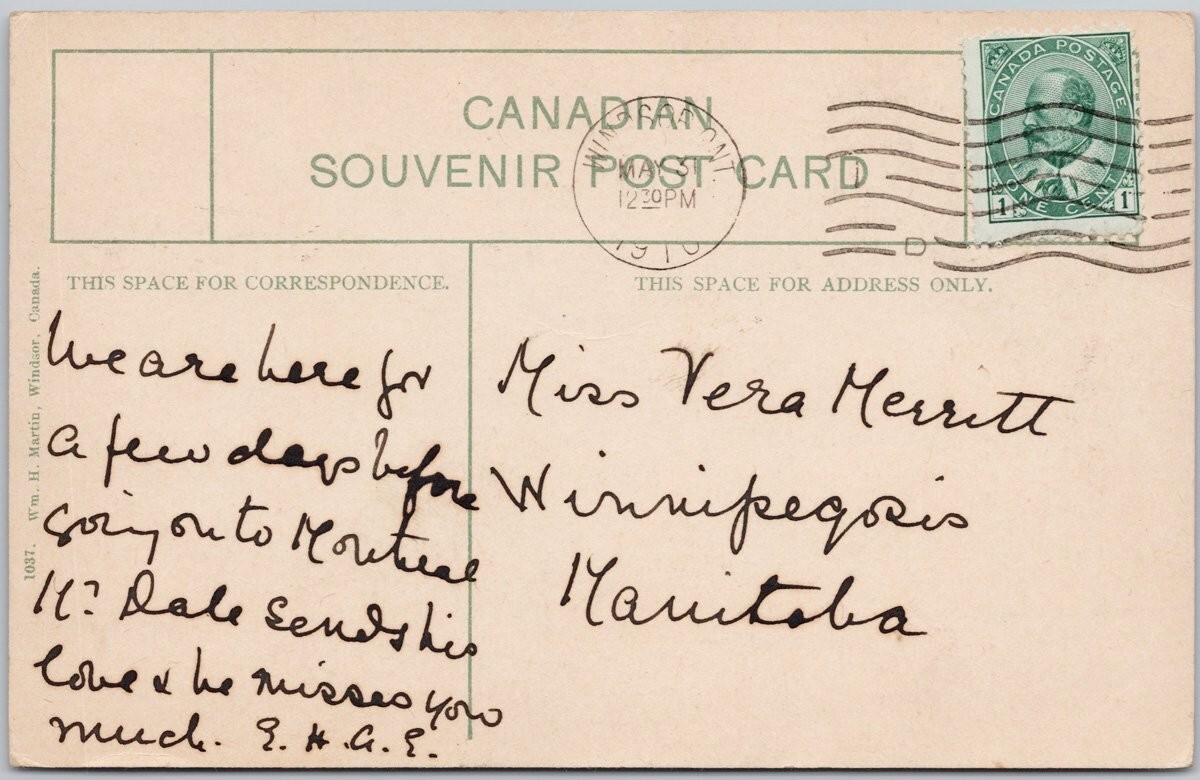 CANADIAN
SOUVENIR POST CARD
WINDSOR ONT
MAY 31
12 30 PM
1910
D
CANADA POSTAGE
1 ONE CENT 1
THIS SPACE FOR CORRESPONDENCE.
THIS SPACE FOR ADDRESS ONLY.
1037. Wm. H. Martin, Windsor, Canada.
We are here for
a few days before
going on to Montreal
Mr. Dale sends his
love & he misses you
much. E. H. G. E.
Miss Vera Merritt
Winnipegosis
Manitoba